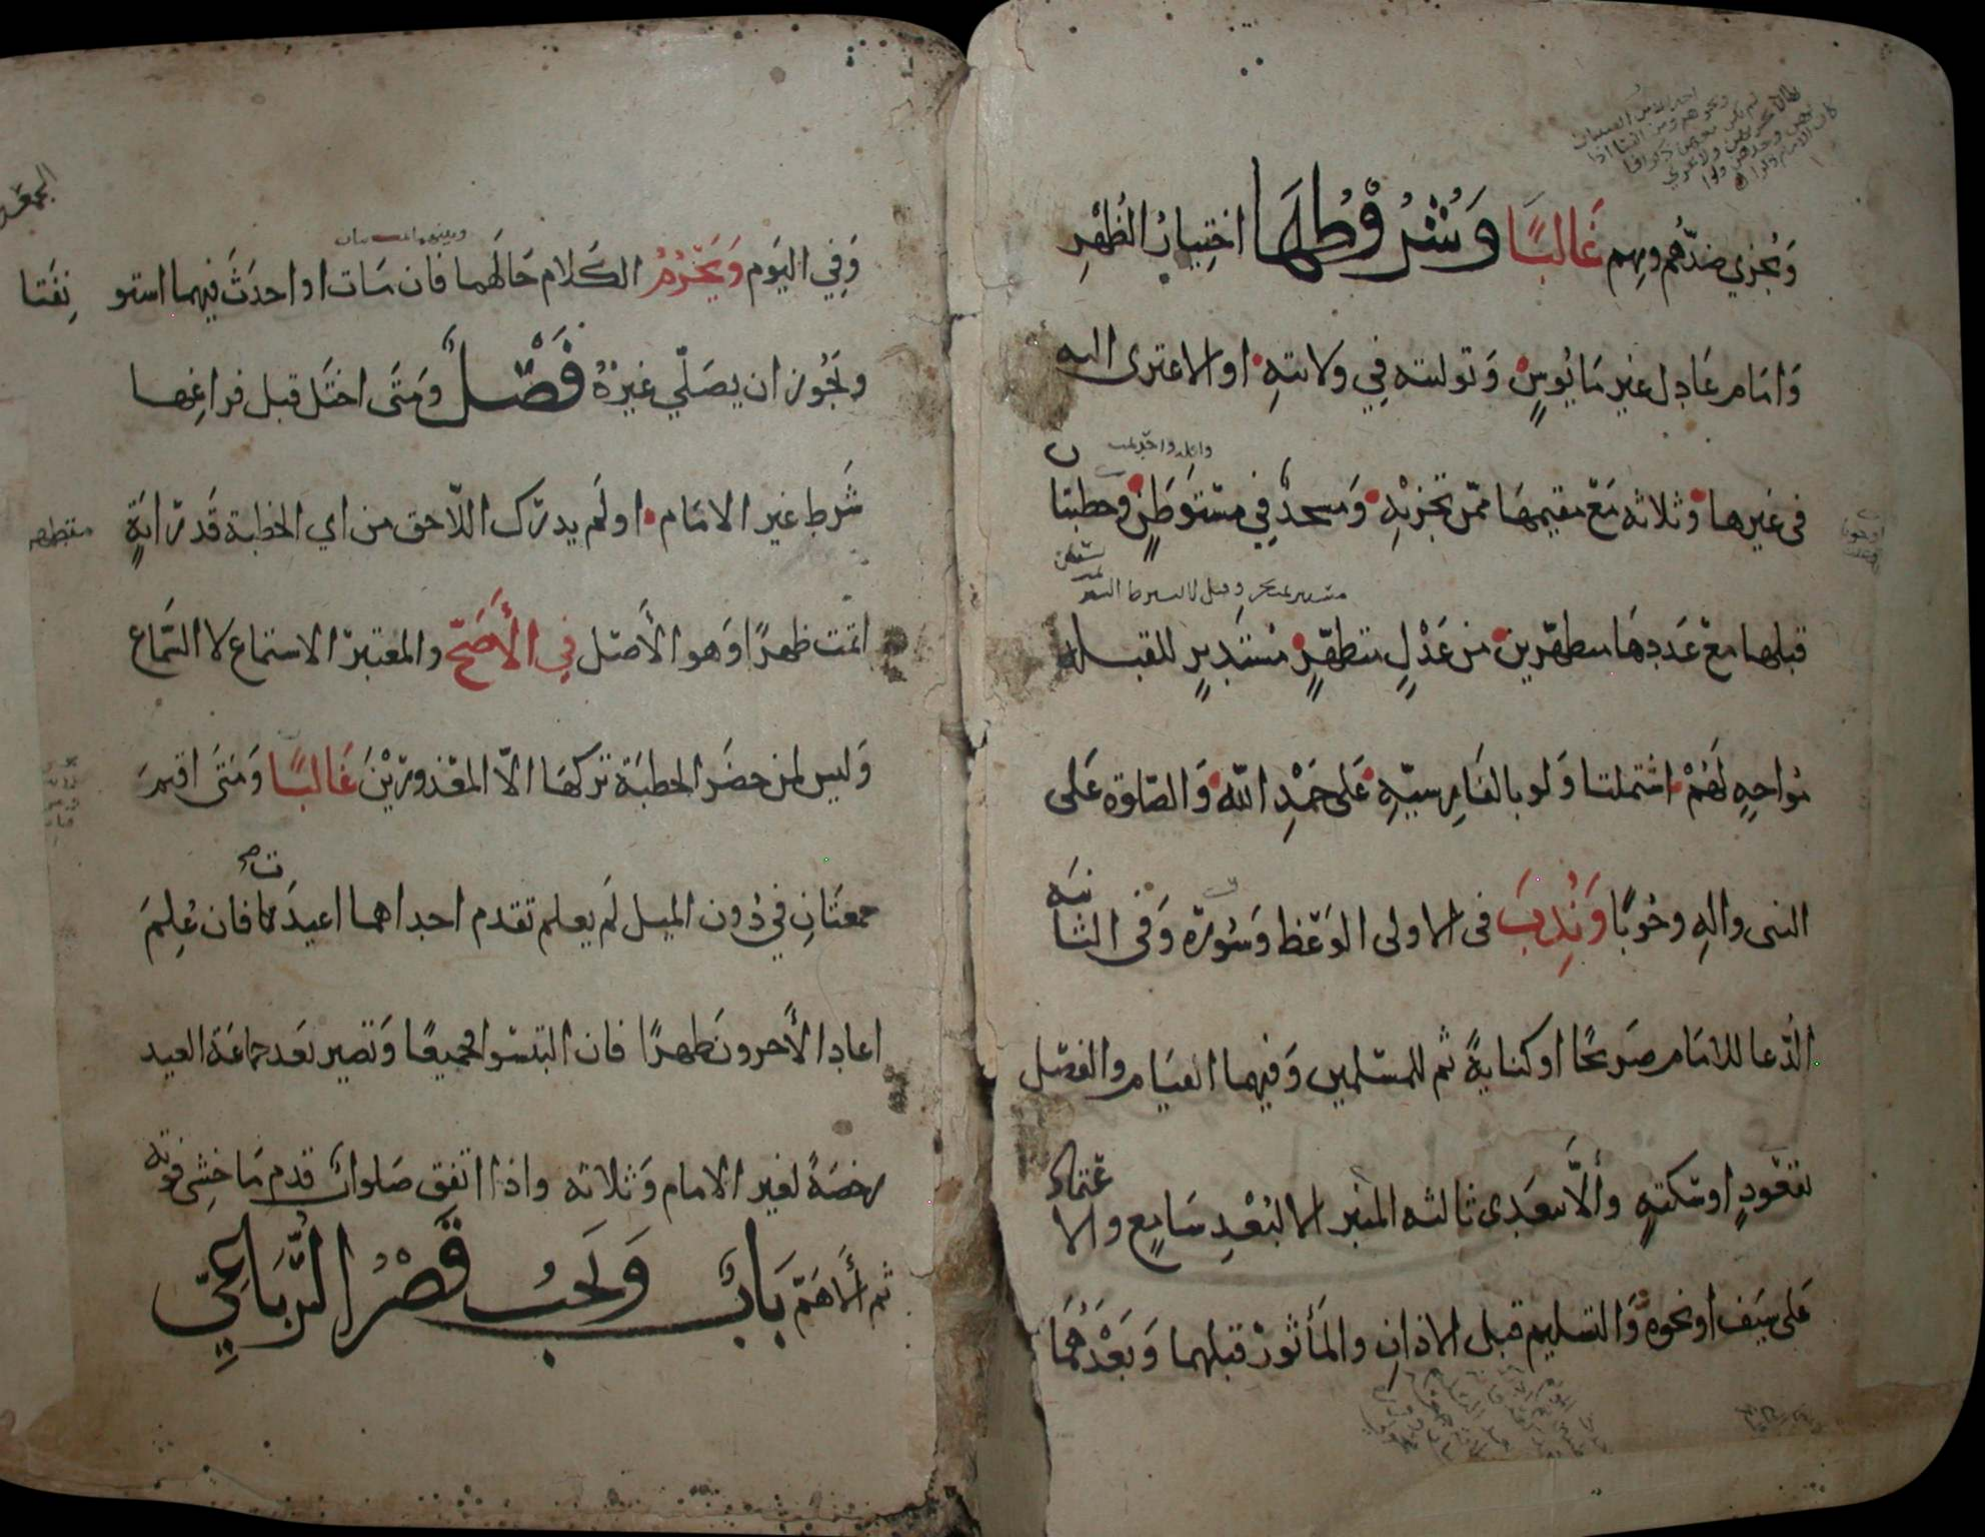 وَتُجزي ضدَّهم وبهم غَالبًا وَشُرُوْطُهَا اختِيارُ الظُهْرِ
وَامَام عَادِل غير مَايُوسٍ وَتوليته فِي ولايتهِ او الاعتزى اليه
فى غيرها وَثلاثه مَعْ مقيمهَا ممّن تجزيْهِ وَمسجدٌ فِي مسْتَوطَنٍ وخطبتان
قبلها معْ عَدَدِهَا متطهّرين من عَدْلٍ متطهّرٍ مُستَدبرٍ للقبله
مُواجهٍ لَهُمْ اشتملتا وَلو بالفَارِسيّهِ عَلى حَمْدِ اللّه وَالصّلوة عَلى
النبى والهِ وجُوبًا وَنُدِبَ فى الاولى الوَعْظ وَسُورَه وَفى الثانيَه
الدُّعا للامَام صَريحًا او كنايةً ثم للمسْلمين وَفيهما القيَام والفصْل
بقعُودٍ او سَكتهٍ وألَّا يتعَدى ثالثه المنبر الا لبُعْدِ سَامعٍ والاعتماد
عَلى سَيف او نحوه وَالتسليم قبل الاذانِ والمَأثورْ قبلهما وَبَعْدَهُمَا
الجمعه
وَفِي اليَوم وَيَحْرُمُ الكَلام حَالَهما فان مَات او احدَثَ فيهما استونِفَتا
وَيجُوز ان يصَلّي غيرَهُ فَصْلٌ وَمَتَى اختَل قبل فراغِها
شَرط غير الامَام او لَم يدرَك اللّاحق من اي الخطبة قَدرَ ايَةٍ
اتمّت ظهرًا وَهو الأَصْل فِي الأَصَحّ والمعْتبرَ الاستماع لا السّمَاع
وَليس لمن حضَر الخطبَة تركهَا الّا المعْذورِيْنَ غَالبًا وَمَتَى اقيمَ
جمعتَانِ فِي دُون الميل لَم يعلم تقدم احداهما اعيدَتا فان عُلِمَ
اعاد الأَخرونَ ظهرًا فان التبسُوا فجميعًا وَتصير بَعَد جماعَة العيد
رخصَةً لغير الامام وَثلاثه واذا اتفق صَلوات قدم مَا خُشِي فوته
ثم الأَهَمّ بَابٌ وَيَجبُ قَصْرُ الرُّبَاعِيِّ